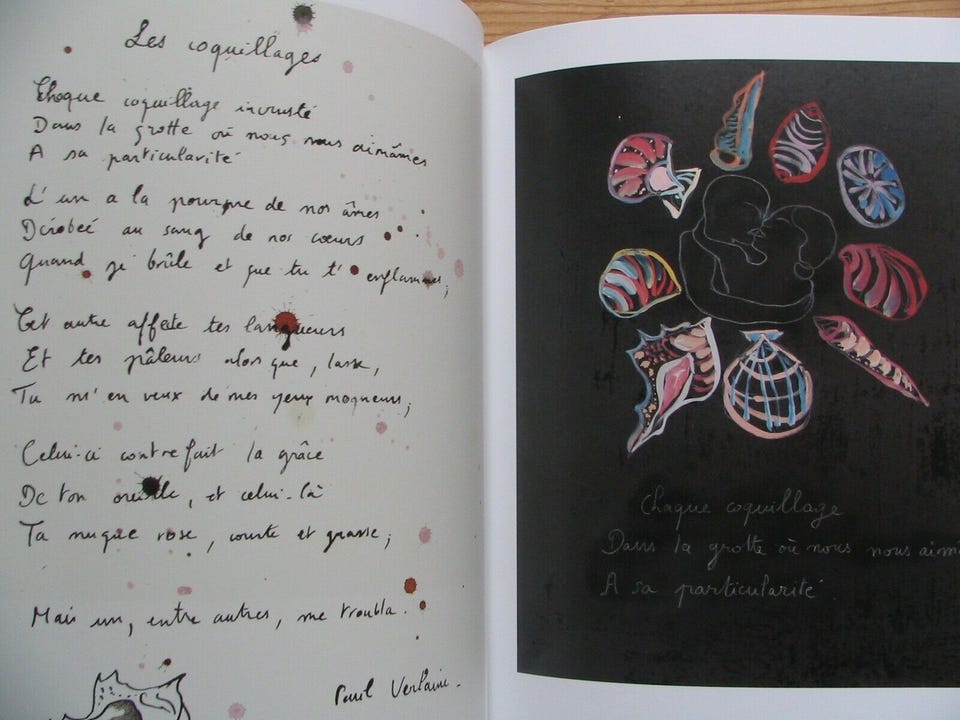 Les coquillages
Chaque coquillage incrusté
Dans la grotte où nous nous aimâmes
A sa particularité
L'un a la pourpre de nos âmes
Dérobée au sang de nos cœurs
Quand je brûle et que tu t'enflammes ;
Cet autre affecte tes langueurs
Et tes pâleurs alors que, lasse,
Tu m'en veux de mes yeux moqueurs ;
Celui-ci contrefait la grâce
De ton oreille, et celui-là
Ta nuque rose, courte et grasse ;
Mais un, entre autres, me troubla.
Paul Verlaine.
Chaque coquillage
Dans la grotte où nous nous aimâ
A sa particularité